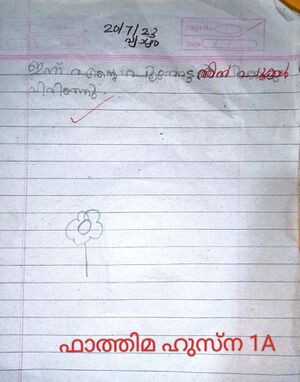 20/7/23
വ്യാഴം
Page No.
Date
ഇന്ന് എന്റെ പൂന്തോട്ടത്തിൽ പൂക്കൾ
വിരിഞ്ഞു
ഫാത്തിമ ഹുസ്ന 1A